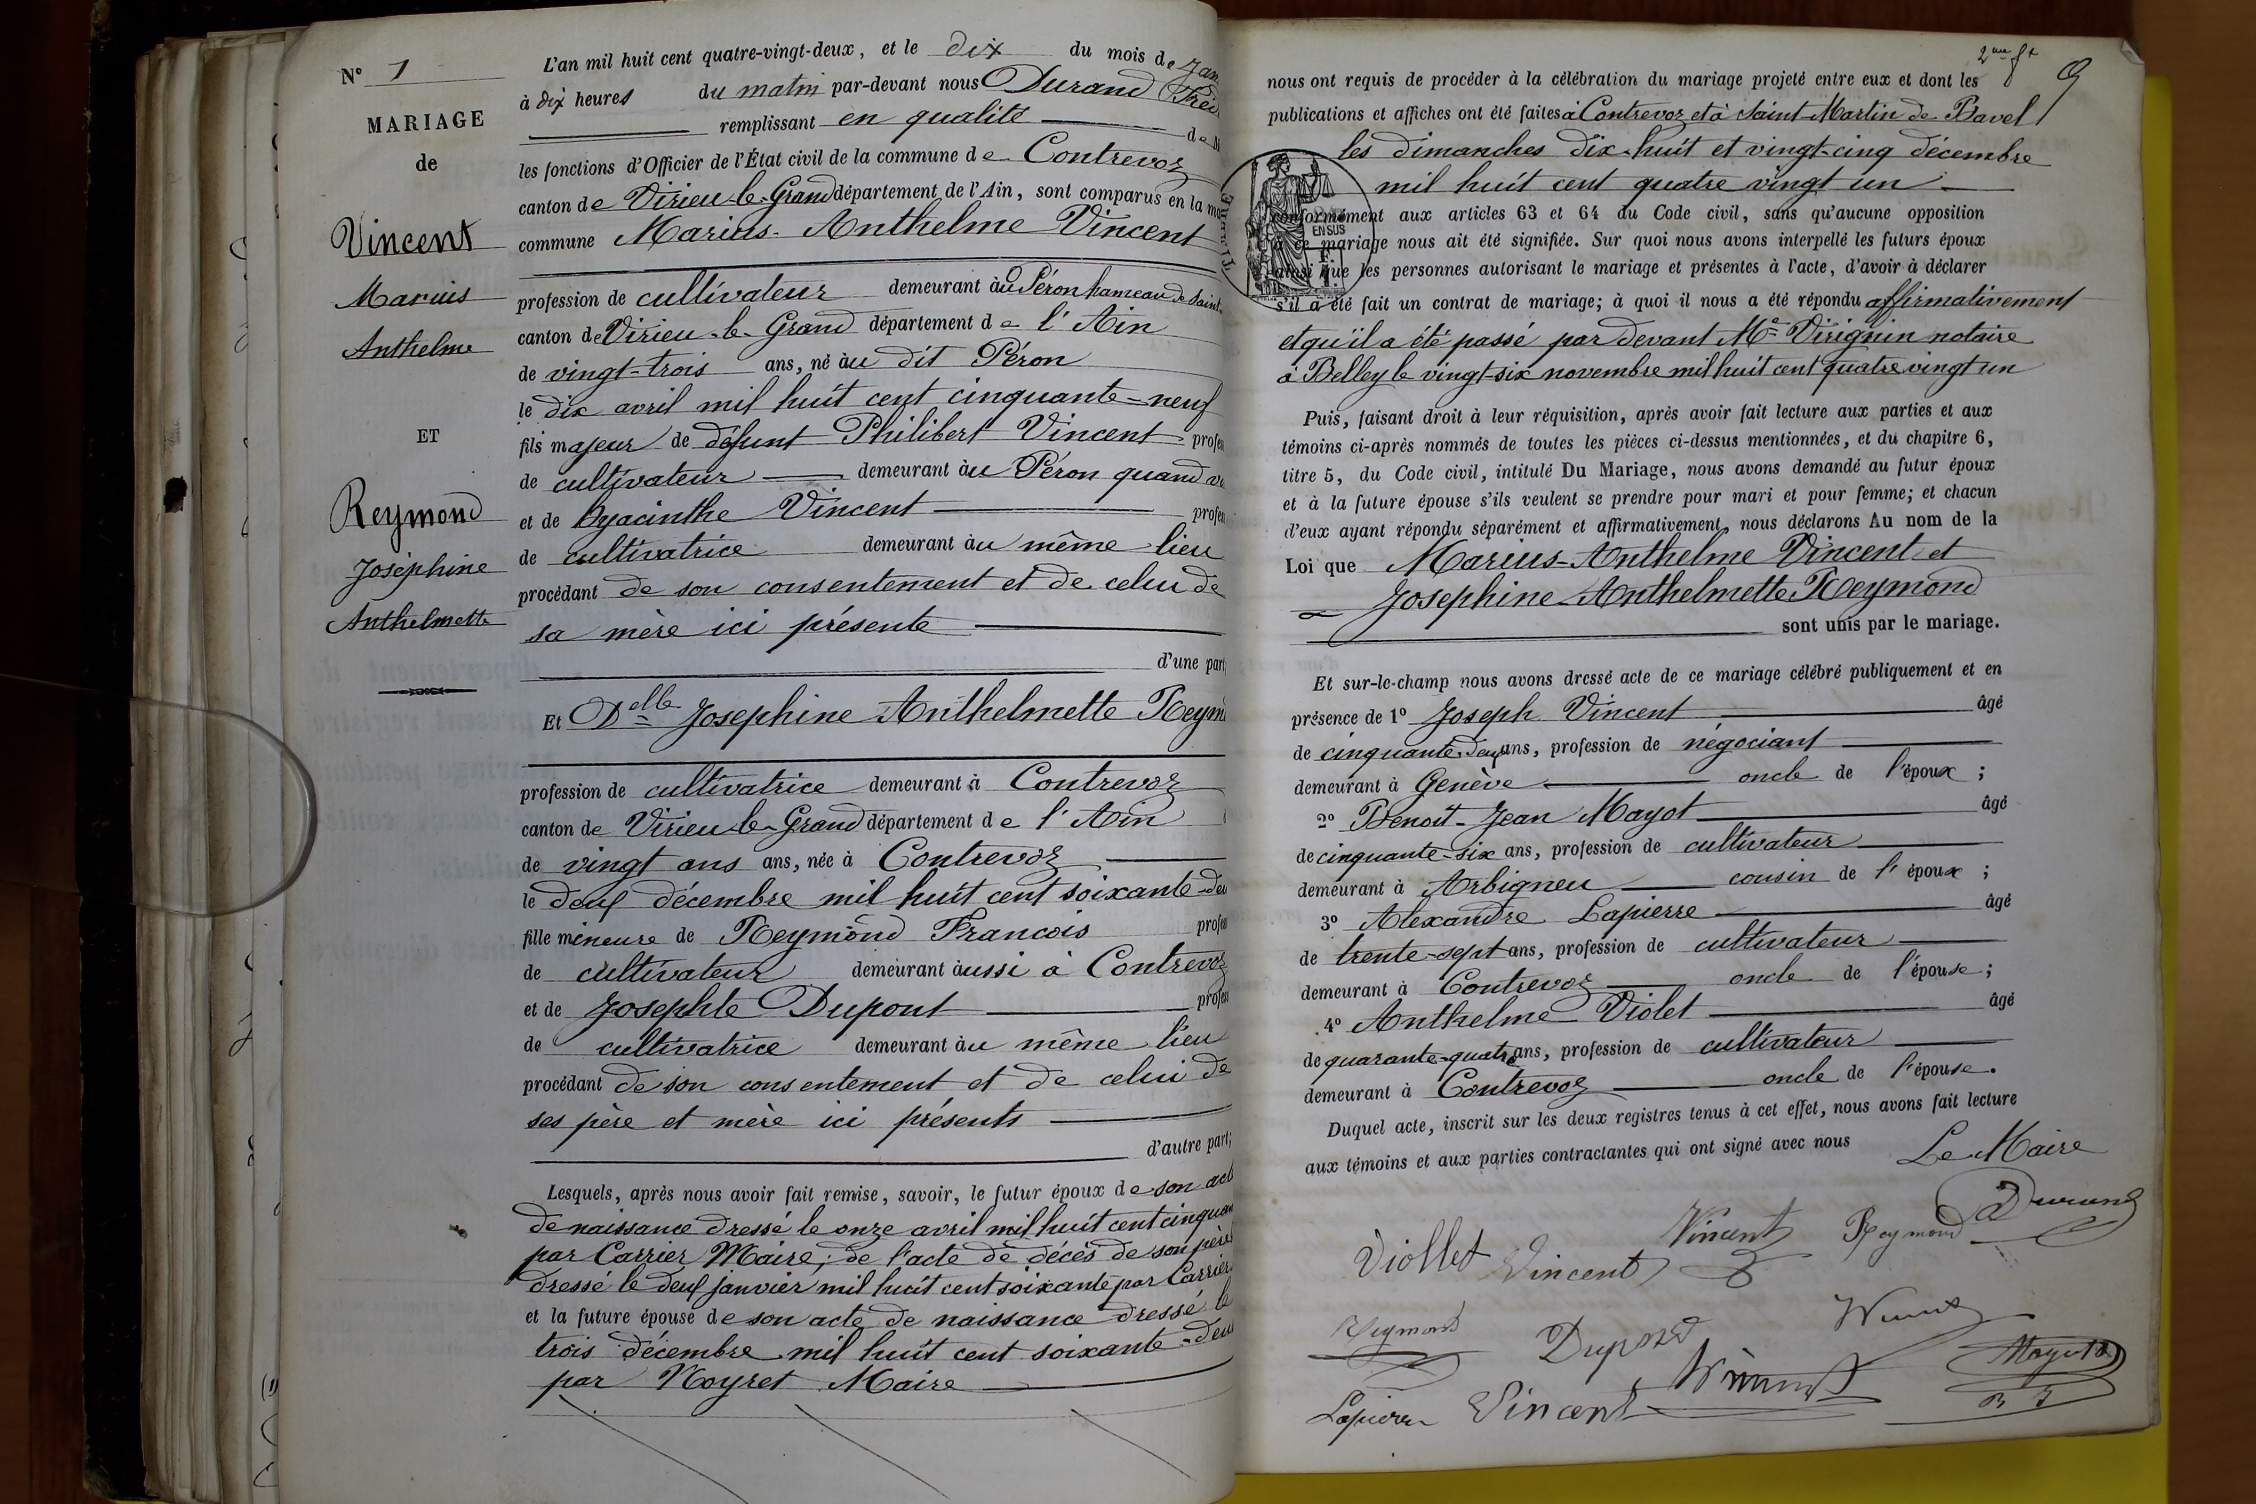 N° 1
MARIAGE
de
Vincent
Marius
Anthelme
ET
Reymond
Joséphine
Anthelmette
L'an mil huit cent quatre-vingt-deux, et le dix du mois de Jan
à dix heures du matin par-devant nous Durand
remplissant en qualité de
les fonctions d'Officier de l'État civil de la commune de Contrevoz
canton de Virieu-le-Grand département de l'Ain, sont comparus en la
commune Marius-Anthelme Vincent
profession de cultivateur demeurant àu Péron hameau de Saint
canton de Virieu-le-Grand département de l'Ain
de vingt-trois ans, né àu dit Péron
le dix avril mil huit cent cinquante-neuf
fils majeur de défunt Philibert Vincent profes
de cultivateur demeurant àu Péron quand
et de Hyacinthe Vincent profes
de cultivatrice demeurant àu même lieu
procédant de son consentement et de celui de
sa mère ici présente
d'une part,
Et Delle Josephine Anthelmette Reym
profession de cultivatrice demeurant à Contrevoz
canton de Virieu-le-Grand département de l'Ain
de vingt ans ans, née à Contrevoz
le deux décembre mil huit cent soixante-deu
fille mineure de Reymond Francois profes
de cultivateur demeurant àussi à Contrevoz
et de Josephte Dupont profes
de cultivatrice demeurant àu même lieu
procédant de son consentement et de celui de
ses père et mère ici présents
d'autre part;
Lesquels, après nous avoir fait remise, savoir, le futur époux de son acte
de naissance dressé le onze avril mil huit cent cinquan
par Carrier Maire; de l'acte de décès de son père
dressé le deux janvier mil huit cent soixante par Carrier
et la future épouse de son acte de naissance dressé le
trois décembre mil huit cent soixante-deux
par Noyret Maire
2me ft 9
nous ont requis de procéder à la célébration du mariage projeté entre eux et dont les
publications et affiches ont été faites à Contrevoz et à Saint-Martin de Bavel
les dimanches dix-huit et vingt-cinq décembre
mil huit cent quatre vingt un
conformément aux articles 63 et 64 du Code civil, sans qu'aucune opposition
à ce mariage nous ait été signifiée. Sur quoi nous avons interpellé les futurs époux
ainsi que les personnes autorisant le mariage et présentes à l'acte, d'avoir à déclarer
s'il a été fait un contrat de mariage; à quoi il nous a été répondu affirmativement
et qu'il a été passé par devant Me Virignin notaire
à Belley le vingt-six novembre mil huit cent quatre vingt un
EN SUS
Puis, faisant droit à leur réquisition, après avoir fait lecture aux parties et aux
témoins ci-après nommés de toutes les pièces ci-dessus mentionnées, et du chapitre 6,
titre 5, du Code civil, intitulé Du Mariage, nous avons demandé au futur époux
et à la future épouse s'ils veulent se prendre pour mari et pour femme; et chacun
d'eux ayant répondu séparément et affirmativement, nous déclarons Au nom de la
Loi que Marius-Anthelme Vincent et
Josephine-Anthelmette Reymond
sont unis par le mariage.
Et sur-le-champ nous avons dressé acte de ce mariage célébré publiquement et en
présence de 1° Joseph Vincent âgé
de cinquante deux ans, profession de négociant
demeurant à Genève oncle de l'époux;
2° Benoit-Jean Mayot âgé
de cinquante-six ans, profession de cultivateur
demeurant à Arbignieu cousin de l'époux;
3° Alexandre Lapierre âgé
de trente-sept ans, profession de cultivateur
demeurant à Contrevoz oncle de l'épouse;
4° Anthelme Violet âgé
de quarante-quatre ans, profession de cultivateur
demeurant à Contrevoz oncle de l'épouse.
Duquel acte, inscrit sur les deux registres tenus à cet effet, nous avons fait lecture
aux témoins et aux parties contractantes qui ont signé avec nous
Le Maire
Durand
Viollet Vincent Vincent Reymond
Reymond Dupond
Lapierre Vincent Vincent Mayot